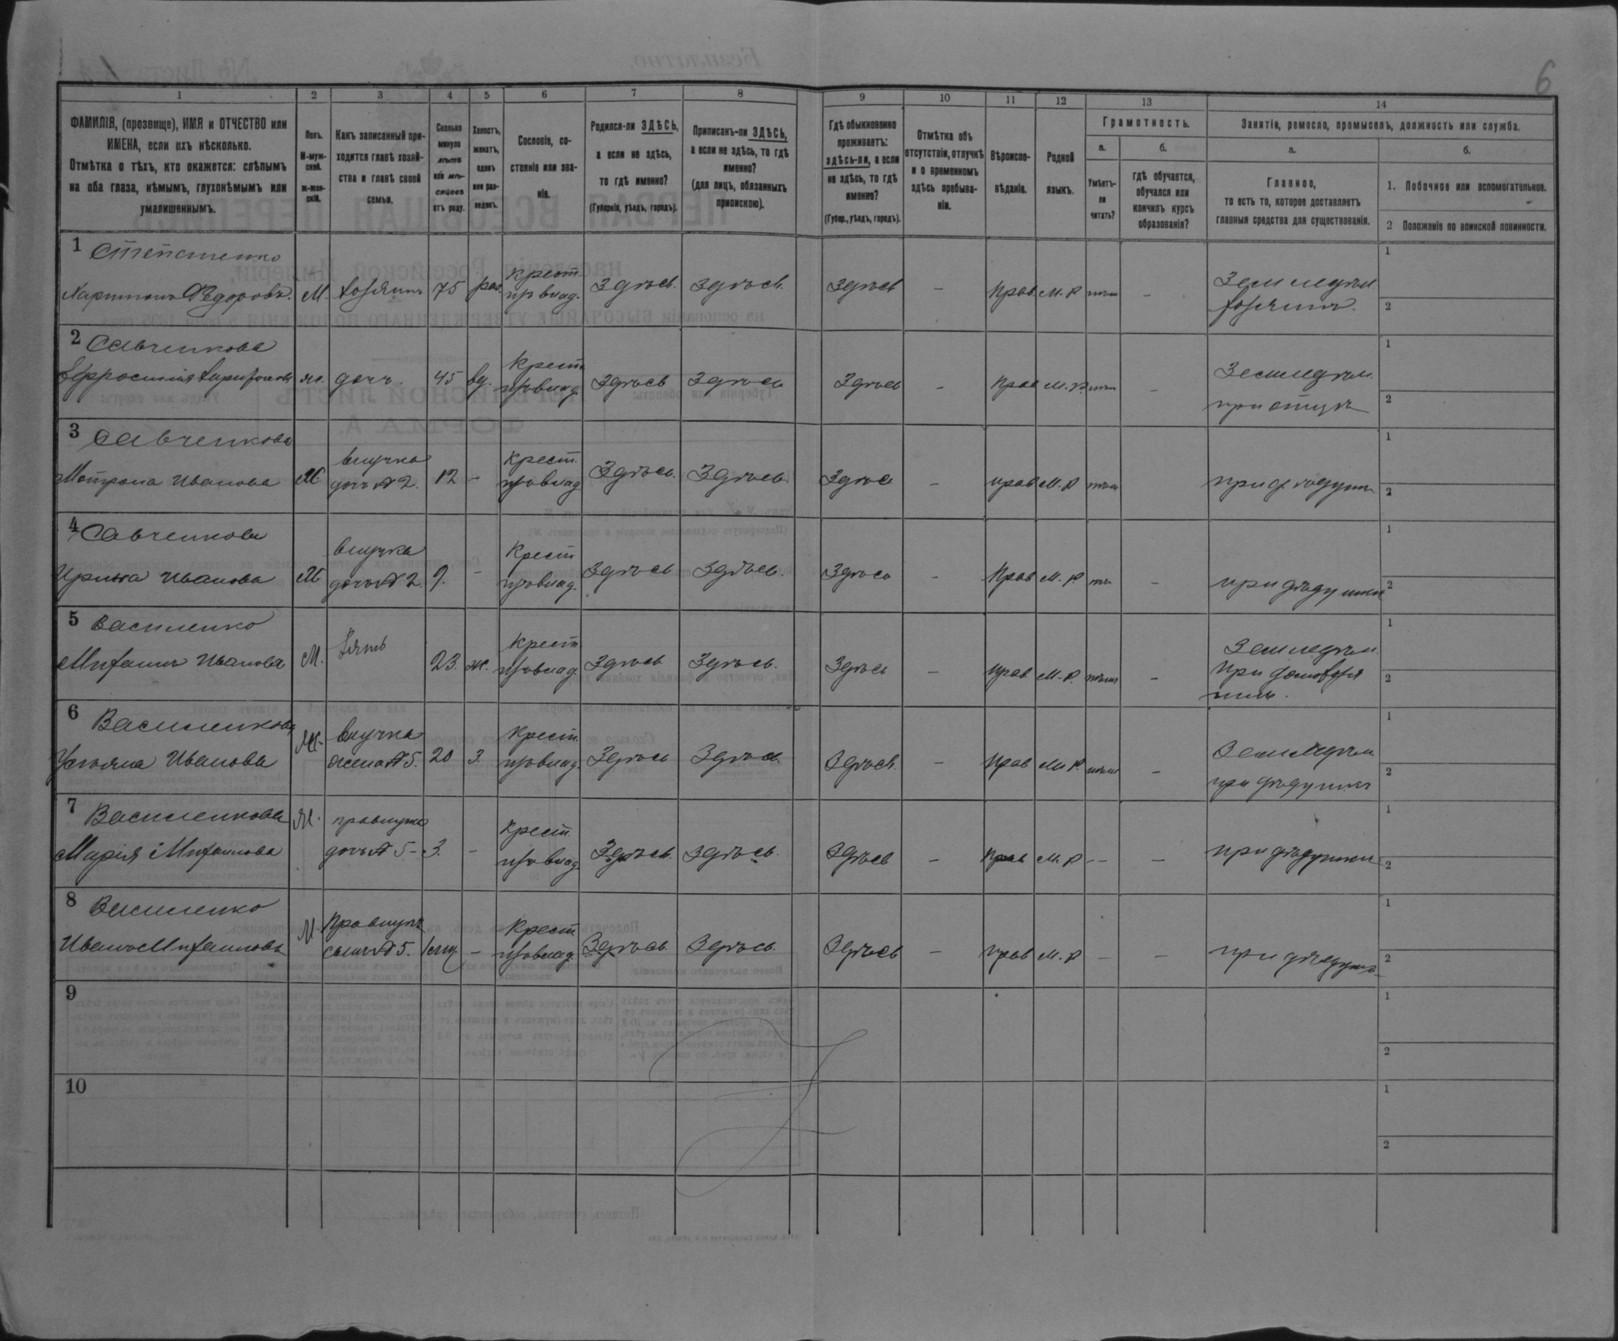 6
1 2 3 4 5 6 7 8 9 10 11 12 13 14
ФАМИЛІЯ, (прозвище), ИМЯ и ОТЧЕСТВО или
ИМЕНА, если ихъ нѣсколько.
Отмѣтка о тѣхъ, кто окажется: слѣпымъ
на оба глаза, нѣмымъ, глухонѣмымъ или
умалишеннымъ.
Полъ.
М-муж-
ской.
ж-жен-
скій.
Какъ записанный при-
ходится главѣ хозяй-
ства и главѣ своей
семьи.
Сколько
минуло
лѣтъ
или мѣ-
сяцевъ
отъ роду.
Холостъ,
женатъ,
вдовъ
или раз-
веденъ.
Сословіе, со-
стояніе или зва-
ніе.
Родился-ли ЗДѢСЬ,
а если не здѣсь,
то гдѣ именно?
(Губернія, уѣздъ, городъ).
Приписанъ-ли ЗДѢСЬ,
а если не здѣсь, то гдѣ
именно?
(для лицъ, обязанныхъ
припискою).
Гдѣ обыкновенно
проживаетъ:
здѣсь-ли, а если
не здѣсь, то гдѣ
именно?
(Губер., уѣздъ, городъ).
Отмѣтка объ
отсутствіи, отлучкѣ
и о временномъ
здѣсь пребыва-
ніи.
Вѣроиспо-
вѣданіе.
Родной
языкъ.
Грамотность.
а.
Умѣетъ-
ли
читать?
б.
гдѣ обучается,
обучался или
кончилъ курсъ
образованія?
Занятіе, ремесло, промыселъ, должность или служба.
а.
Главное,
то есть то, которое доставляетъ
главныя средства для существованія.
б.
1. Побочное или вспомогательное.
2 Положеніе по воинской повинности.
1 Степаненко
Харитонъ Ѳедоровъ. М хозяинъ 75 Крест. Здѣсь. Здѣсь. Здѣсь – Прав М. Р –
Земледѣл
хозяинъ.
1
2
2 Савченкова
Ефросинія Харитонова ж. дочь. 45 вд. Крест Здѣсь Здѣсь Здѣсь – Прав М. Р –
Земледѣл.
при отцѣ
1
2
3 Савченкова
Мотрона Иванова Ж
внучка
дочь № 2. 12 – Крест. Здѣсь. Здѣсь Здѣсь – прав М. Р
при дѣдушкѣ
1
2
4 Савченкова
Ирина Иванова Ж
внучка
дочь № 2. 9. – Крест Здѣсь Здѣсь. Здѣсь – Прав М. Р –
при дѣдушкѣ
1
2
5 Василенко
Михаилъ Ивановъ М. Зять 23 ж. Крест Здѣсь Здѣсь. Здѣсь – прав М. Р. –
Земледѣл.
При
1
2
6 Василенкова
Ульяна Иванова Ж.
внучка
жена № 5. 20 З. Крест. Здѣсь Здѣсь Здѣсь. – прав М. Р. –
Земледѣл
при дѣдушкѣ
1
2
7 Василенкова
Марія Михаилова Ж.
правнучка
дочь № 5 – 3. – Крест. Здѣсь. Здѣсь. Здѣсь – Прав М. Р – –
при дѣдушкѣ
1
2
8 Василенко
Иванъ Михаиловъ М
Правнукъ
сынъ № 5. – Крест Здѣсь. Здѣсь. Здѣсь – прав М. Р – –
при дѣдушкѣ
1
2
9
1
2
10
1
2